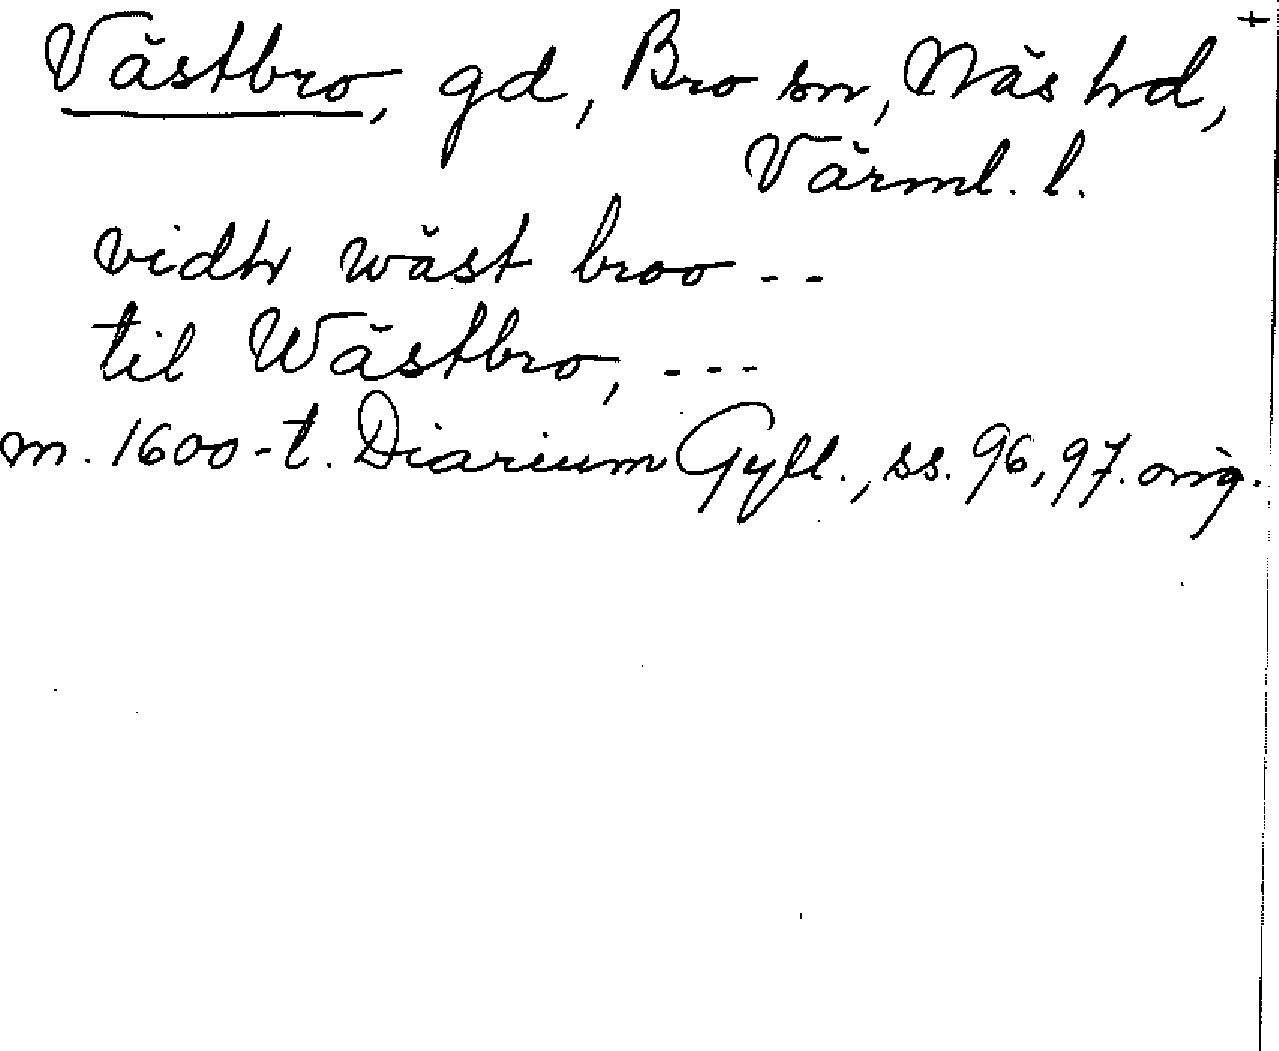 +
Västbro, gd, Bro sn, Näs hd,
Värml. l.
vidh wäst broo - -
til Wästbro, - - -
m. 1600-t. Diarium Gyll., ss. 96, 97. orig.